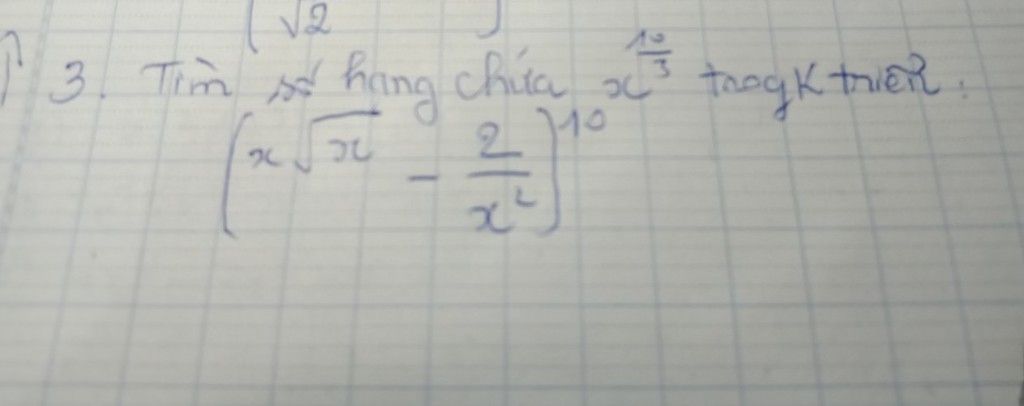 √2
3. Tìm số hạng chứa x^(10/3) trogk triển:
(x√x - 2/x²)^10